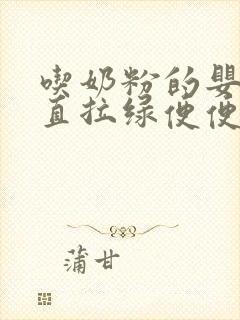 喫奶粉的嬰
直拉绿便便
蒲甘